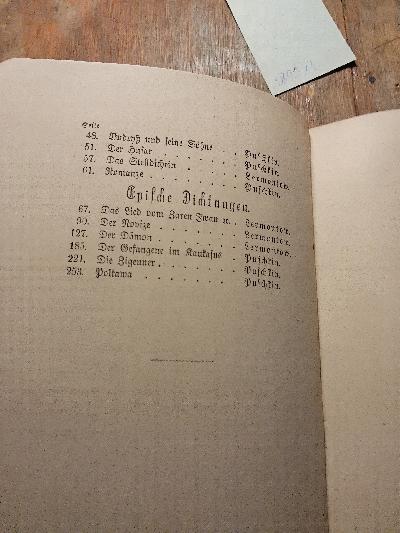 Seite
48. Budryß und seine Söhne . . Puschkin.
51. Der Husar . . . . . . . Puschkin.
57. Das Stelldichein . . . . . Lermontow.
61. Romanze . . . . . . . Puschkin.
Epische Dichtungen.
67. Das Lied vom Zaren Iwan ꝛc. . Lermontow.
90. Der Novize . . . . . . . Lermontow.
127. Der Dämon . . . . . . . Lermontow.
185. Der Gefangene im Kaukasus . Puschkin.
221. Die Zigeuner . . . . . . . Puschkin.
253. Poltawa . . . . . . . . Puschkin.